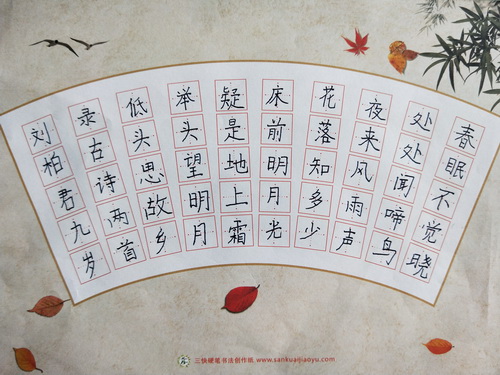 春眠不觉晓
处处闻啼鸟
夜来风雨声
花落知多少
床前明月光
疑是地上霜
举头望明月
低头思故乡
录古诗两首
刘柏君九岁
三快硬笔书法创作纸 www.sankuaijiaoyu.com